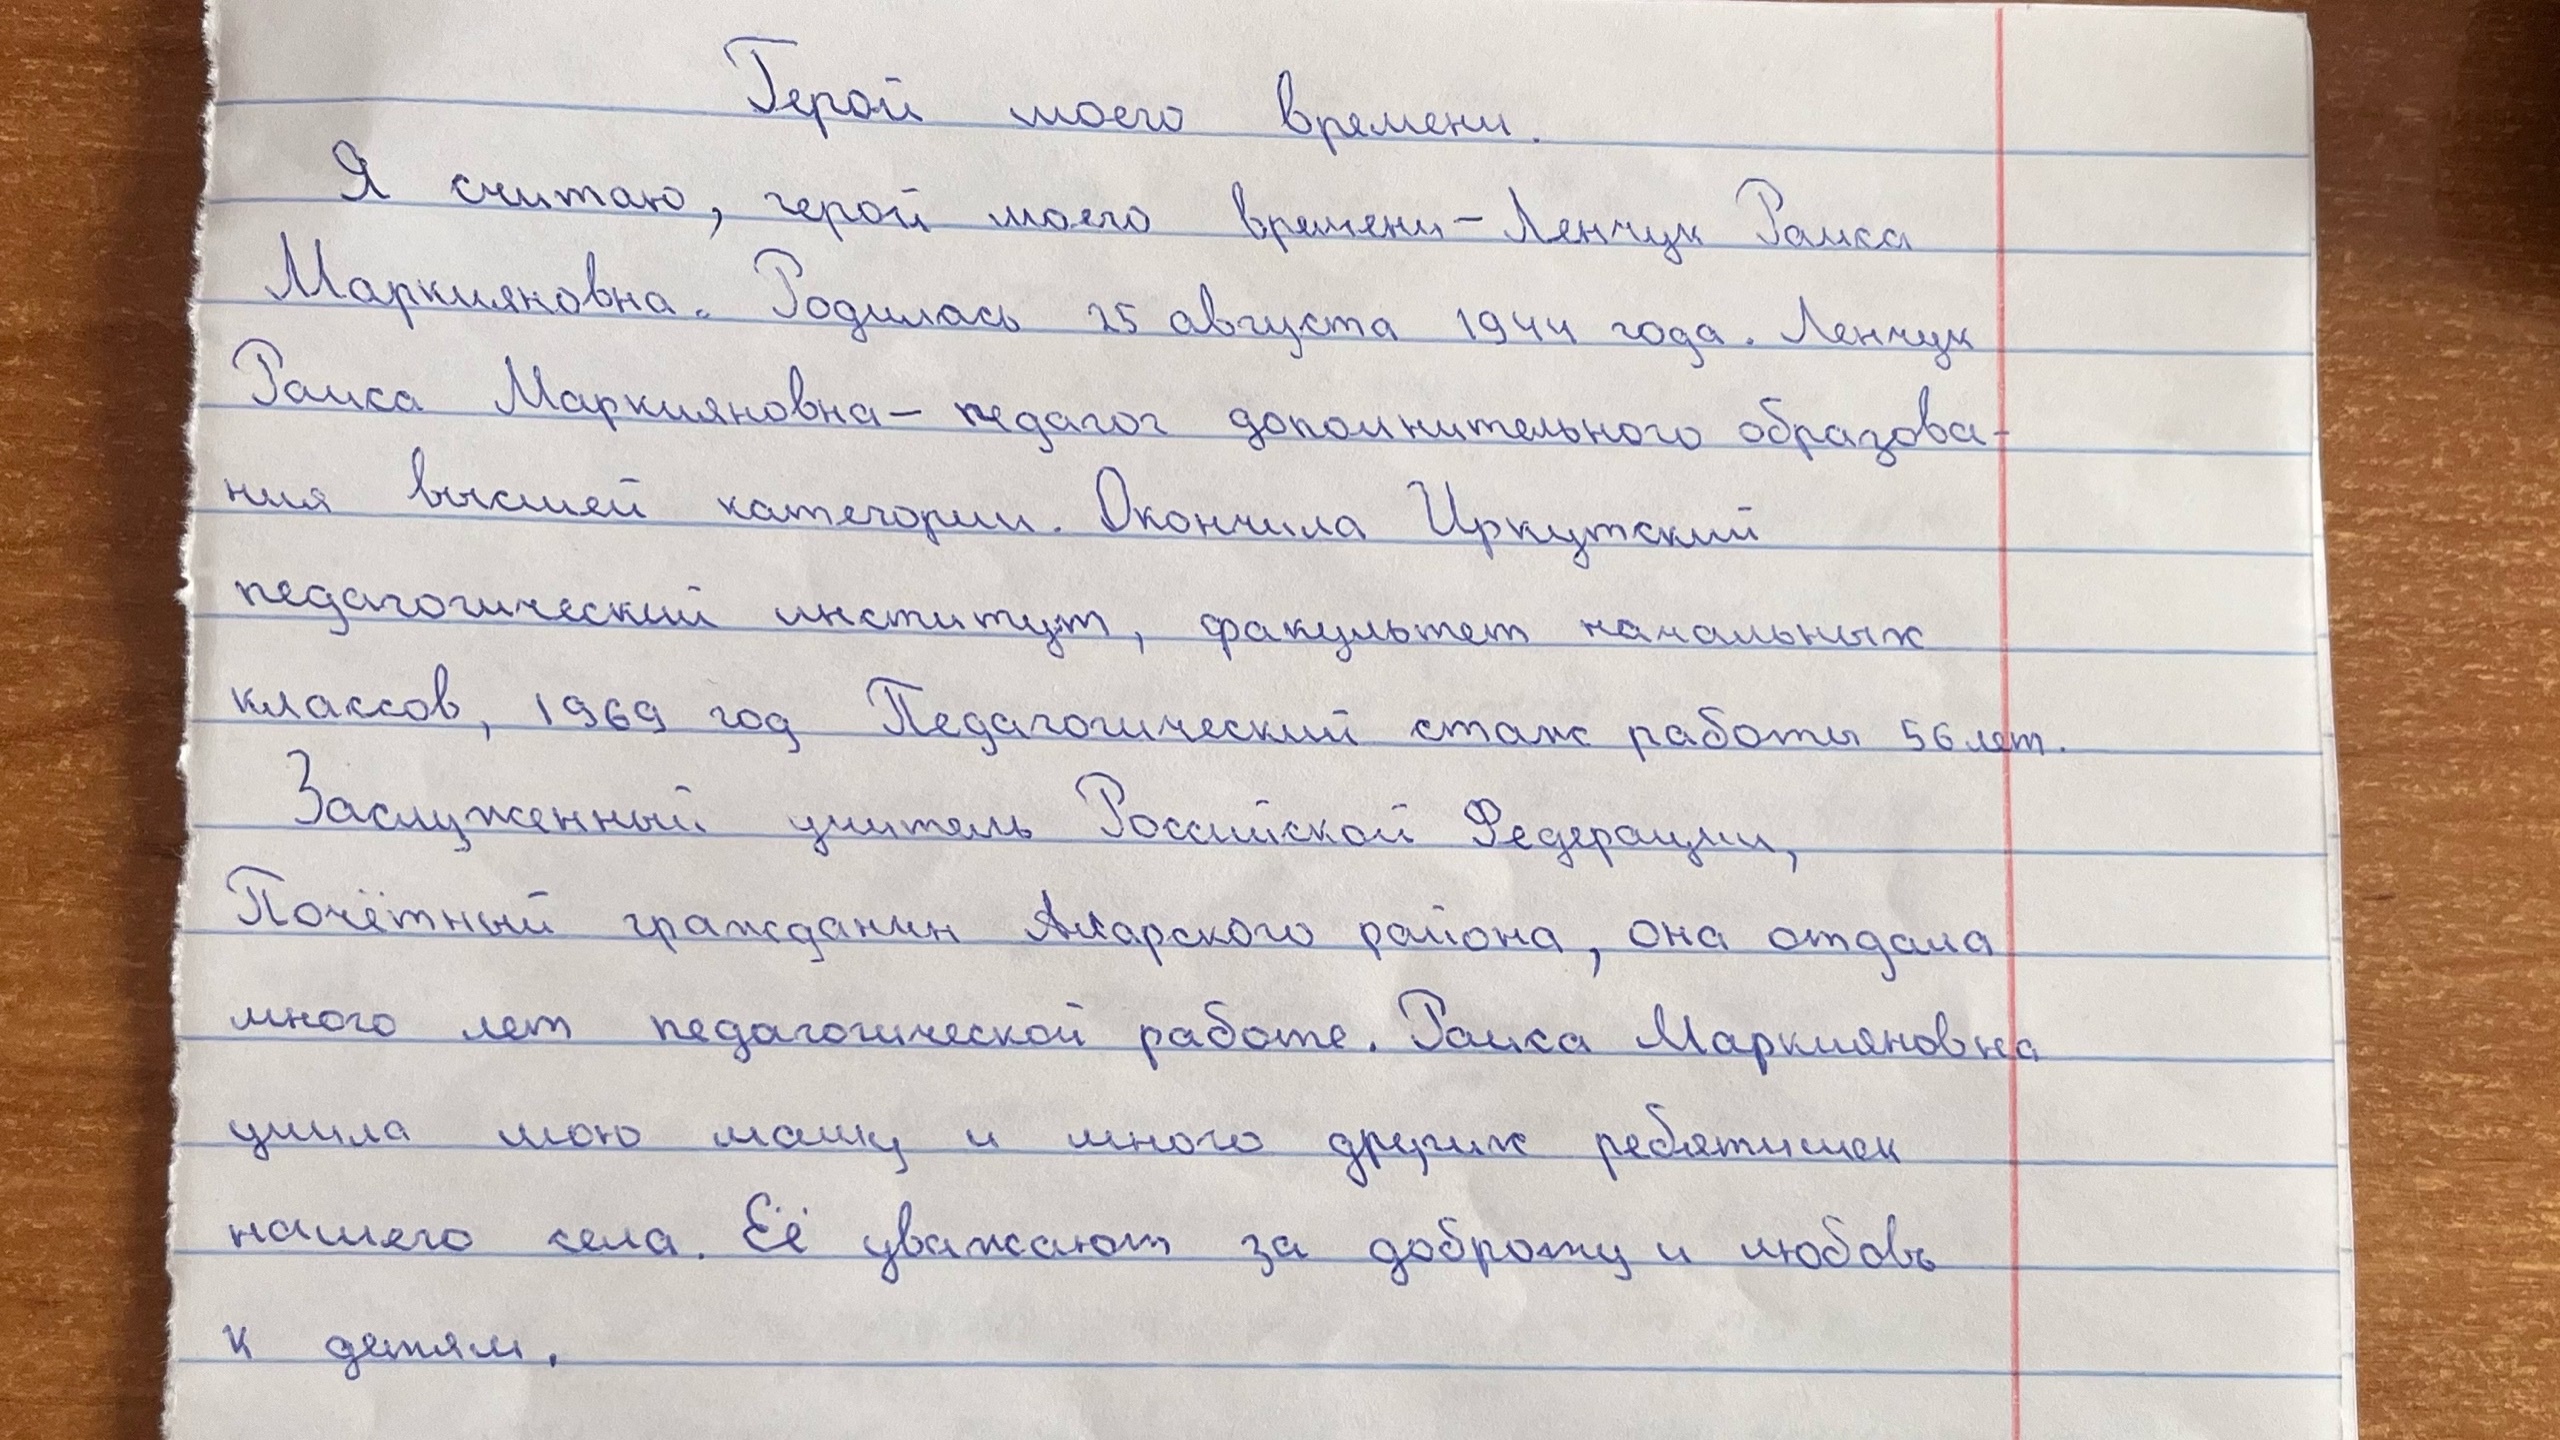 Герой моего времени.
Я считаю, герой моего времени – Ленчук Раиса
Маркияновна. Родилась 25 августа 1944 года. Ленчук
Раиса Маркияновна – педагог дополнительного образова-
ния высшей категории. Окончила Иркутский
педагогический институт, факультет начальных
классов, 1969 год Педагогический стаж работы 56 лет.
Заслуженный учитель Российской Федерации,
Почётный гражданин Аларского района, она отдала
много лет педагогической работе. Раиса Маркияновна
учила мою маму и много других ребятишек
нашего села. Её уважают за доброту и любовь
к детям.